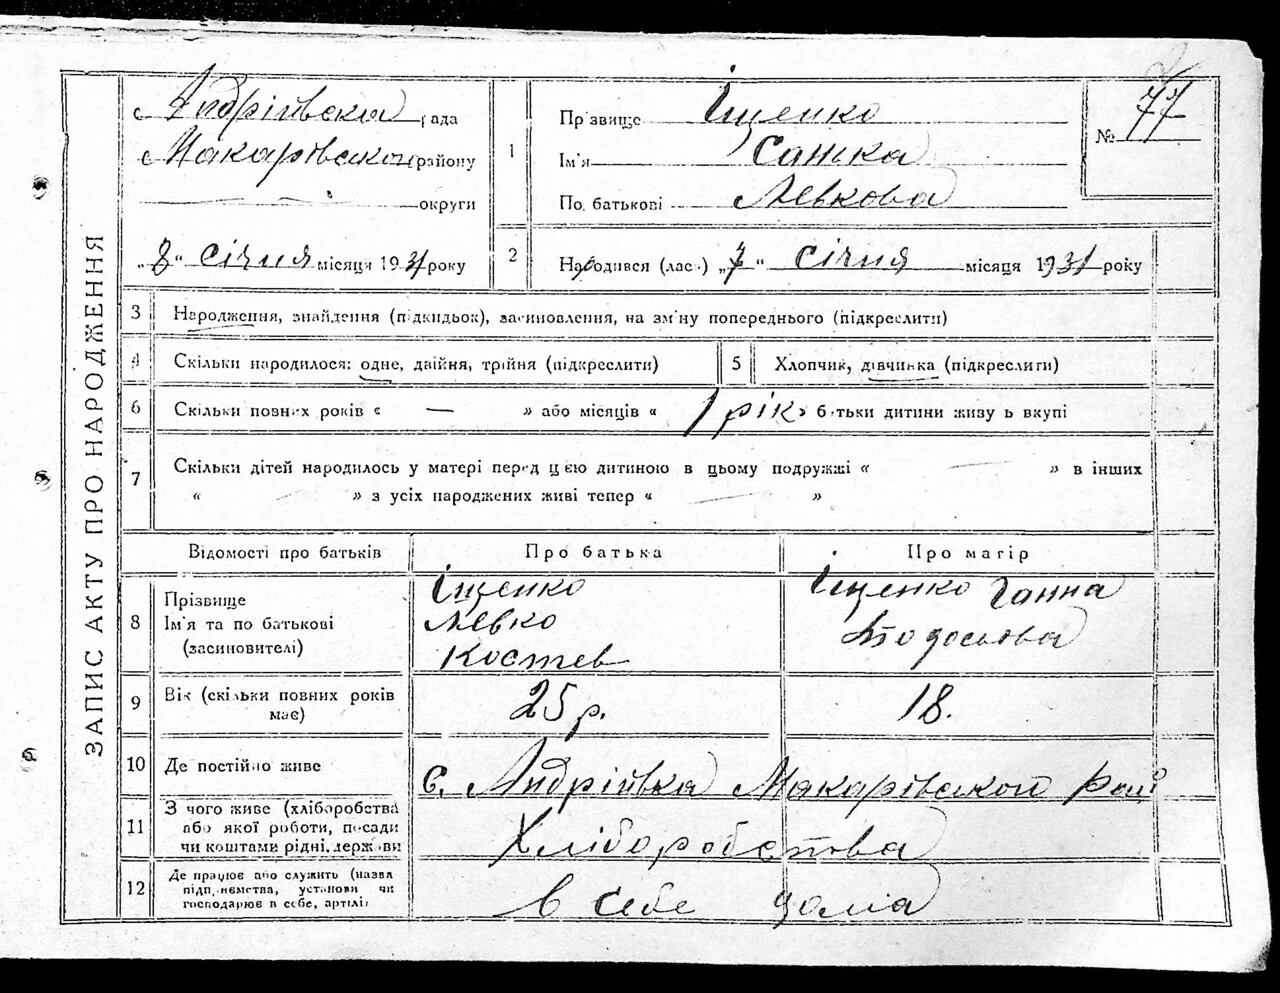 ЗАПИС АКТУ ПРО НАРОДЖЕННЯ
с. Андріївска рада
Макарівского району
округи
„8“ січня місяця 1931 року
1
Прізвище Іщенко
Ім'я Санька
По батькові Левкова
№ 77
2
Народився (лась) „7“ січня місяця 1931 року
3 Народження, знайдення (підкидьок), засиновлення, на зміну попереднього (підкреслити)
4 Скільки народилося: одне, двійня, трійня (підкреслити)
5 Хлопчик, дівчинка (підкреслити)
6 Скільки повних років « — » або місяців « 1 рік » батьки дитини живуть вкупі
7 Скільки дітей народилось у матері перед цією дитиною в цьому подружжі « — » в інших
« — » з усіх народжених живі тепер « — »
Відомості про батьків Про батька Про матір
8 Прізвище
Ім'я та по батькові
(засиновителі)
Іщенко
Левко
Костев
Іщенко Ганна
Тодосьова
9 Вік (скільки повних років
має)
25 р.
18.
10 Де постійно живе с. Андріївка Макарівського
11 З чого живе (хліборобства
або якої роботи, посади
чи коштами рідні, держави
Хліборобства
12 Де працює або служить (назва
підприємства, установи чи
господарює в себе, артілі)
в себе дома